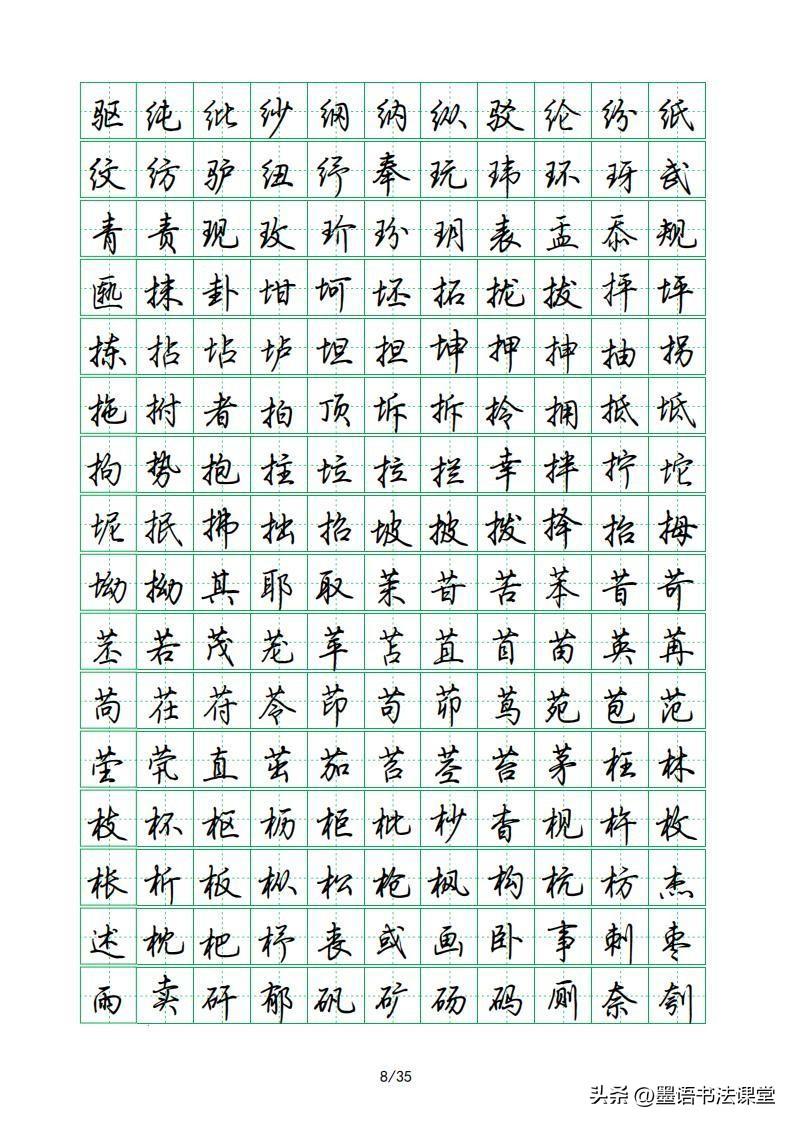 驱纯纰纱纲纳纵驳纶纷纸
纹纺驴纽纾奉玩玮环玡武
青责现玫玠玢玥表盂忝规
匦抹卦坩坷坯拓拢拔抨坪
拣拈坫垆坦担坤押抻抽拐
拖拊者拍顶坼拆拎拥抵坻
拘势抱拄垃拉拦幸拌拧坨
坭抿拂拙招坡披拨择抬拇
坳拗其耶取茉苷苦苯昔苛
苤若茂茏苹苫苴苜苗英苒
苘茌苻苓茚苟茆茑苑苞范
茔茕直茁茄苕茎苔茅枉林
枝杯枢枥柜枇杪杳枧杵枚
枨析板枞松枪枫构杭枋杰
述枕杷杼丧或画卧事刺枣
雨卖矸郁矾矿砀码厕奈刳
8/35
头条 @墨语书法课堂